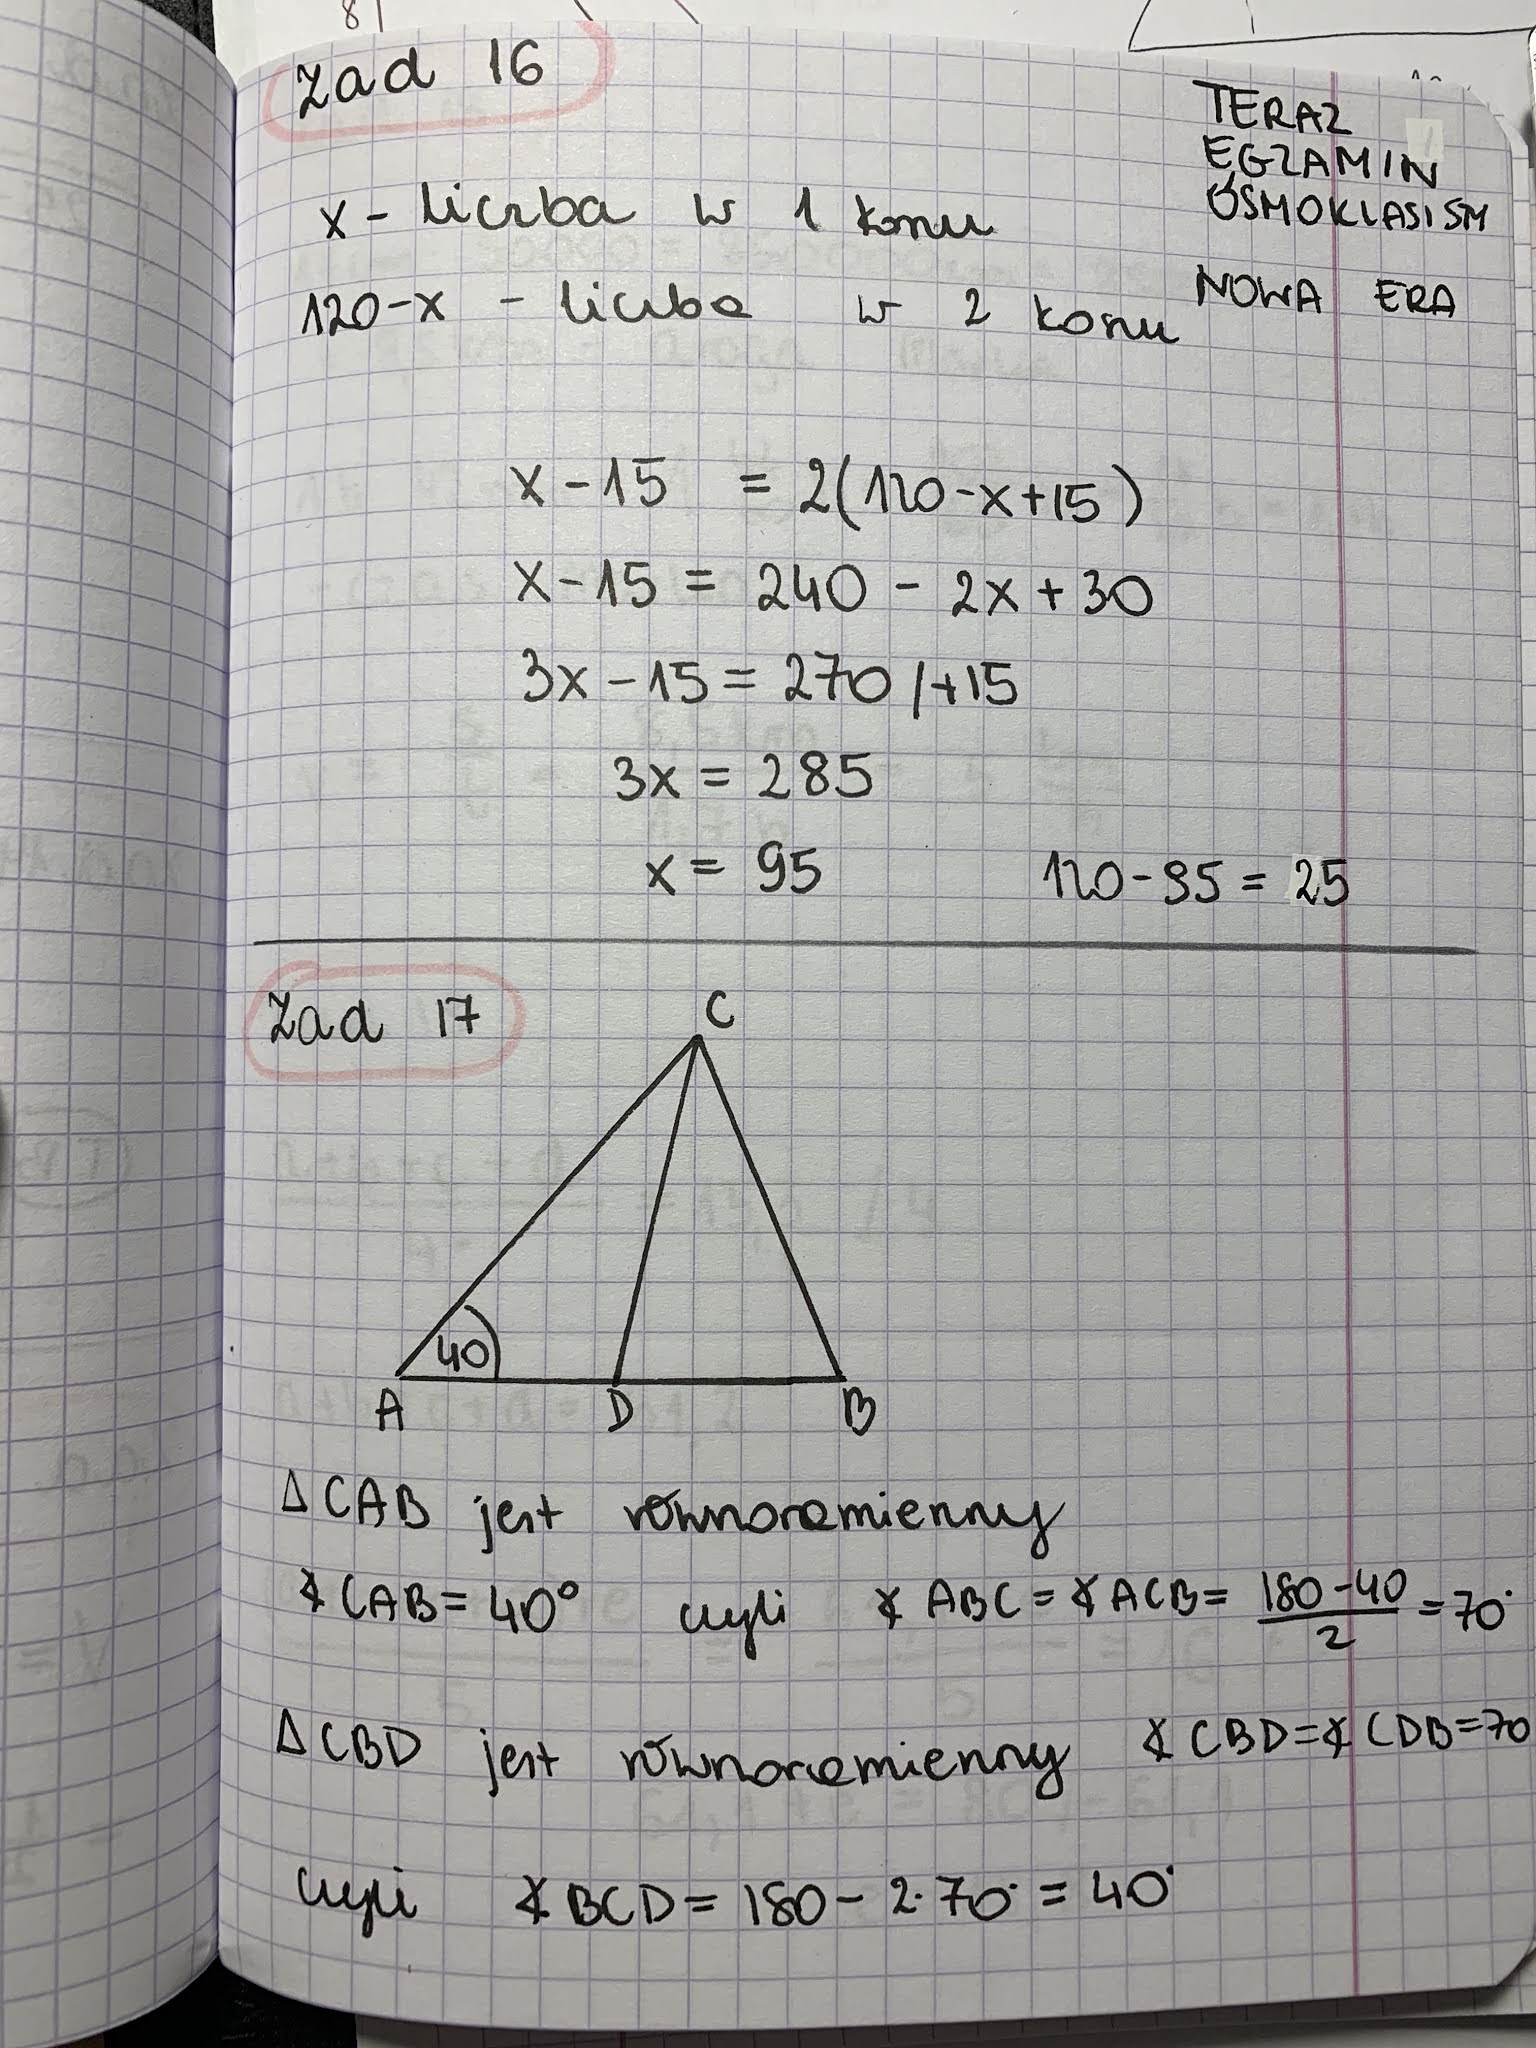 8
Zad 16
TERAZ
EGZAMIN
ÓSMOKLASISM
NOWA ERA
x - liczba w 1 koszu
120-x - liczba w 2 koszu
x - 15 = 2(120-x+15)
x - 15 = 240 - 2x + 30
3x - 15 = 270 /+15
3x = 285
x = 95 120-95 = 25
Zad 17
C
40
A D B
Δ CAB jest równoramienny
∢ CAB = 40° czyli ∢ ABC = ∢ ACB = 180-40/2 = 70°
Δ CBD jest równoramienny ∢ CBD = ∢ CDB = 70
czyli ∢ BCD = 180 - 2·70° = 40°